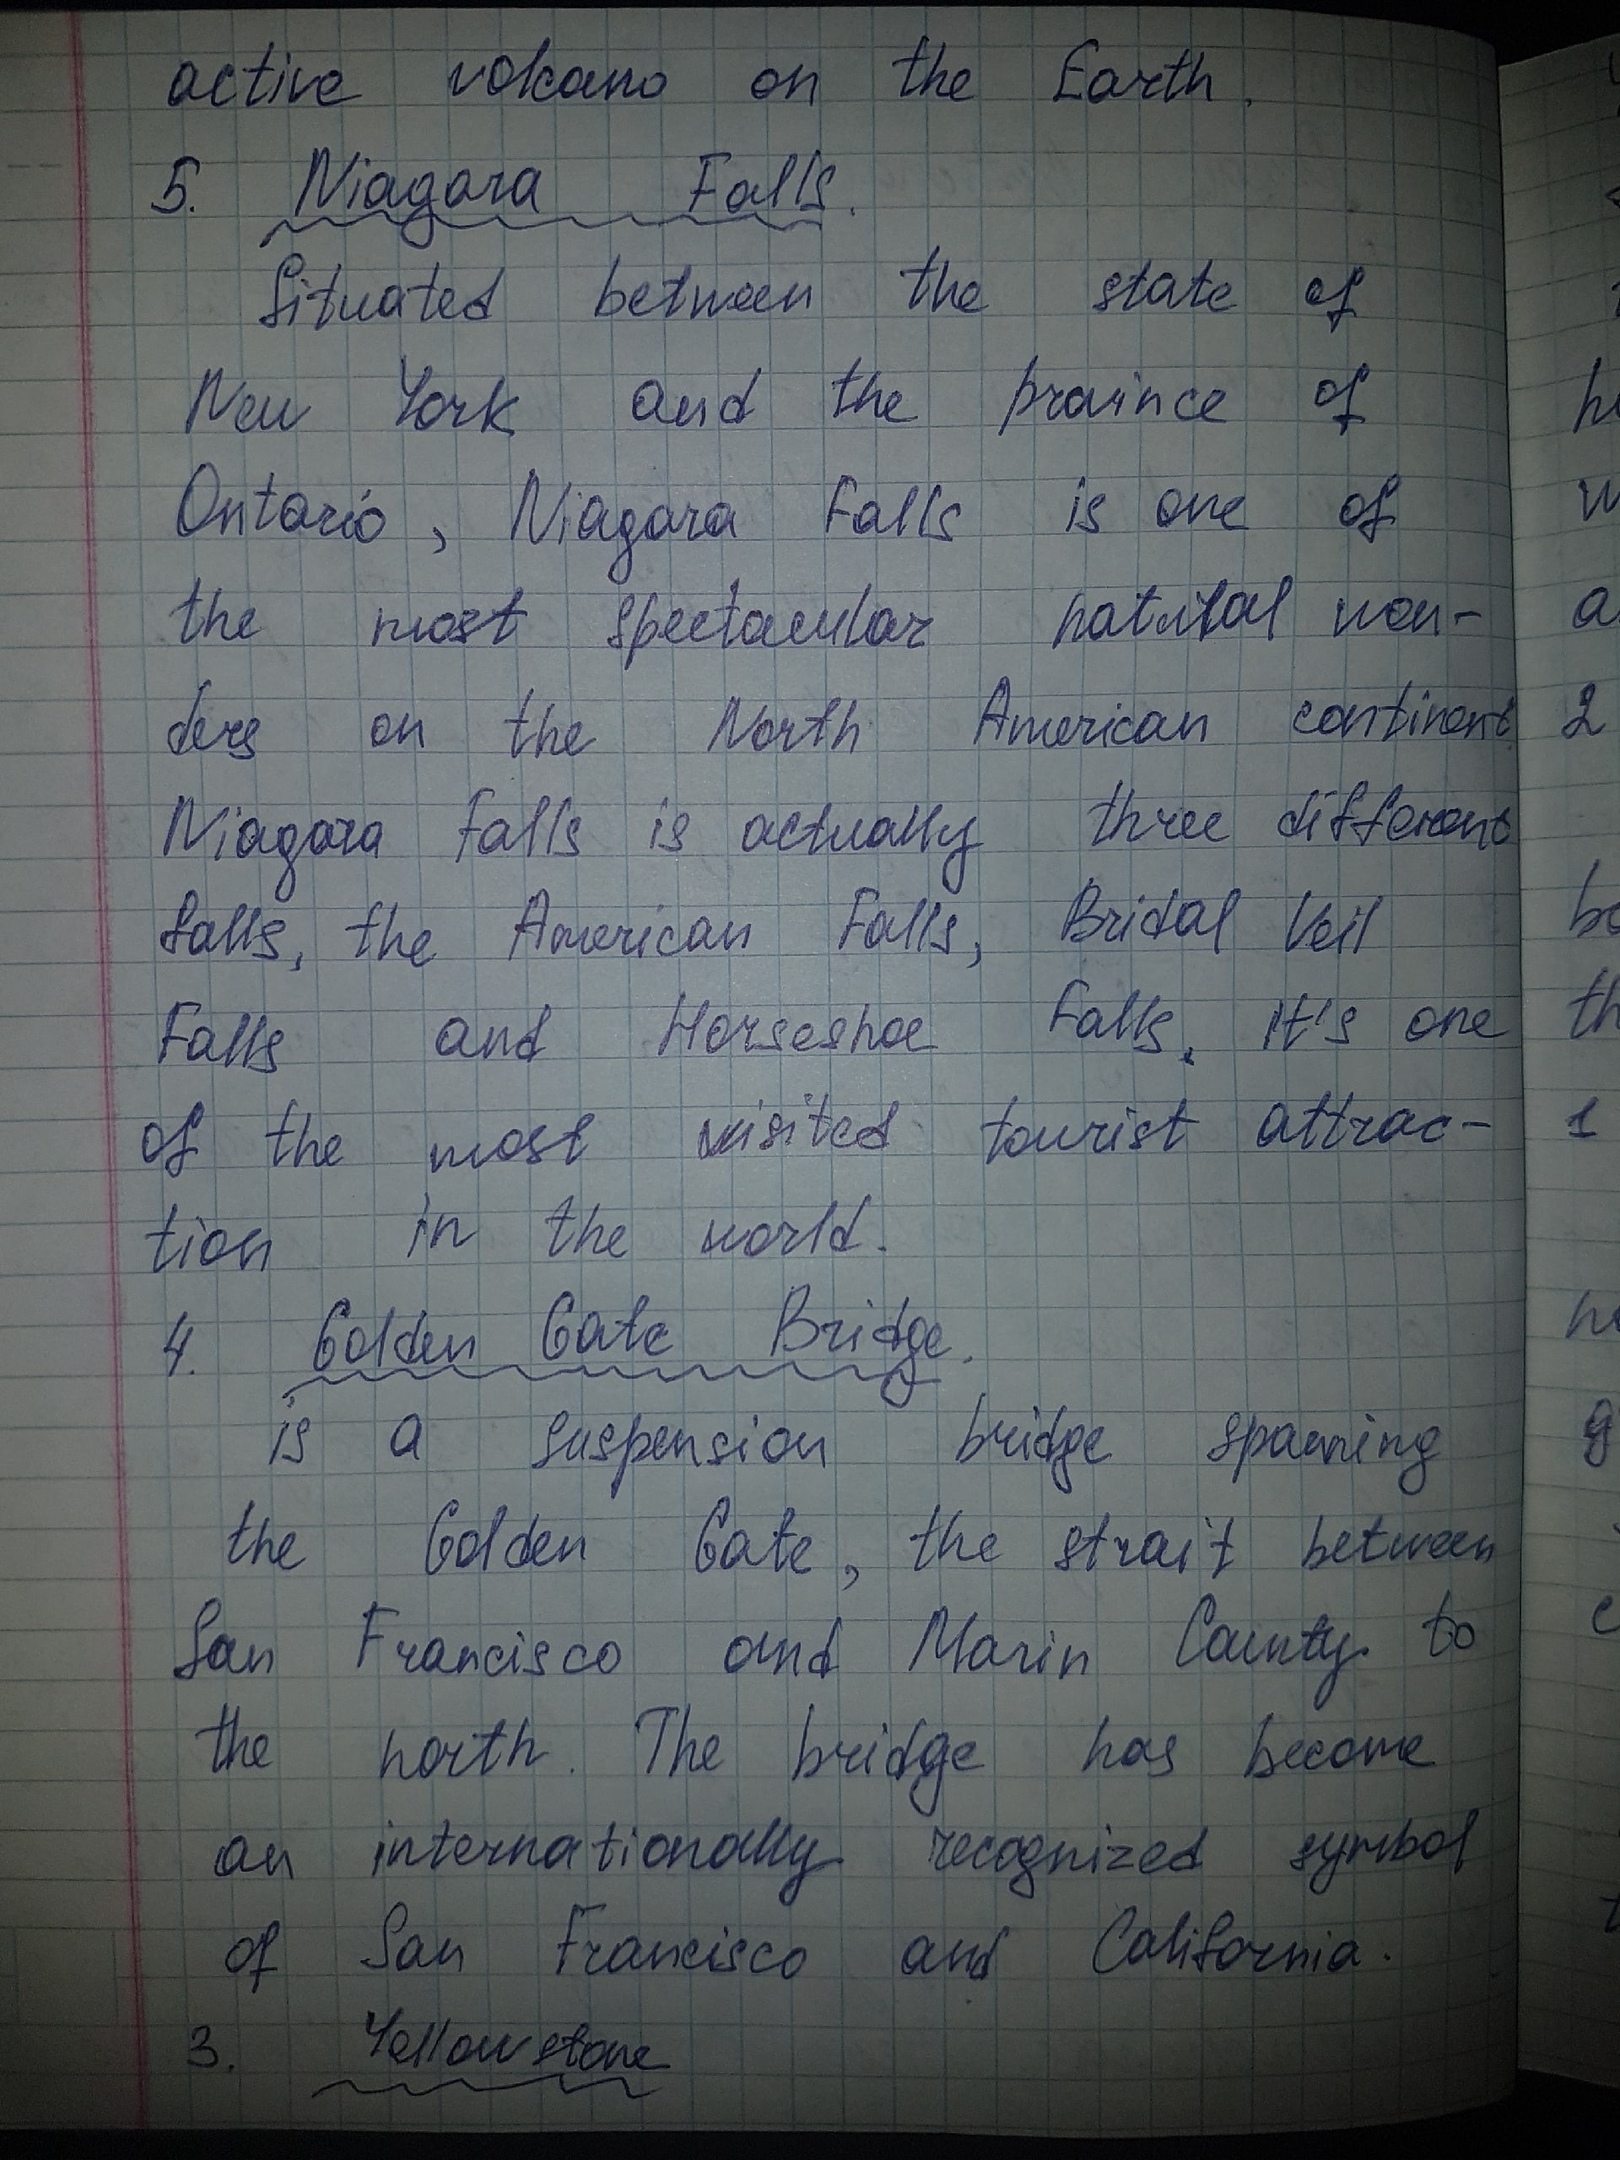 active volcano on the Earth.
5. Niagara Falls.
Situated between the state of
New York and the province of
Ontario, Niagara Falls is one of
the most spectacular natural won-
ders on the North American continent
Niagara Falls is actually three different
falls, the American Falls, Bridal Veil
Falls and Horseshoe Falls. It's one
of the most visited tourist attrac-
tion in the world.
4. Golden Gate Bridge.
is a suspension bridge spanning
the Golden Gate, the strait between
San Francisco and Marin County to
the north. The bridge has become
an internationally recognized symbol
of San Francisco and California.
3. Yellowstone